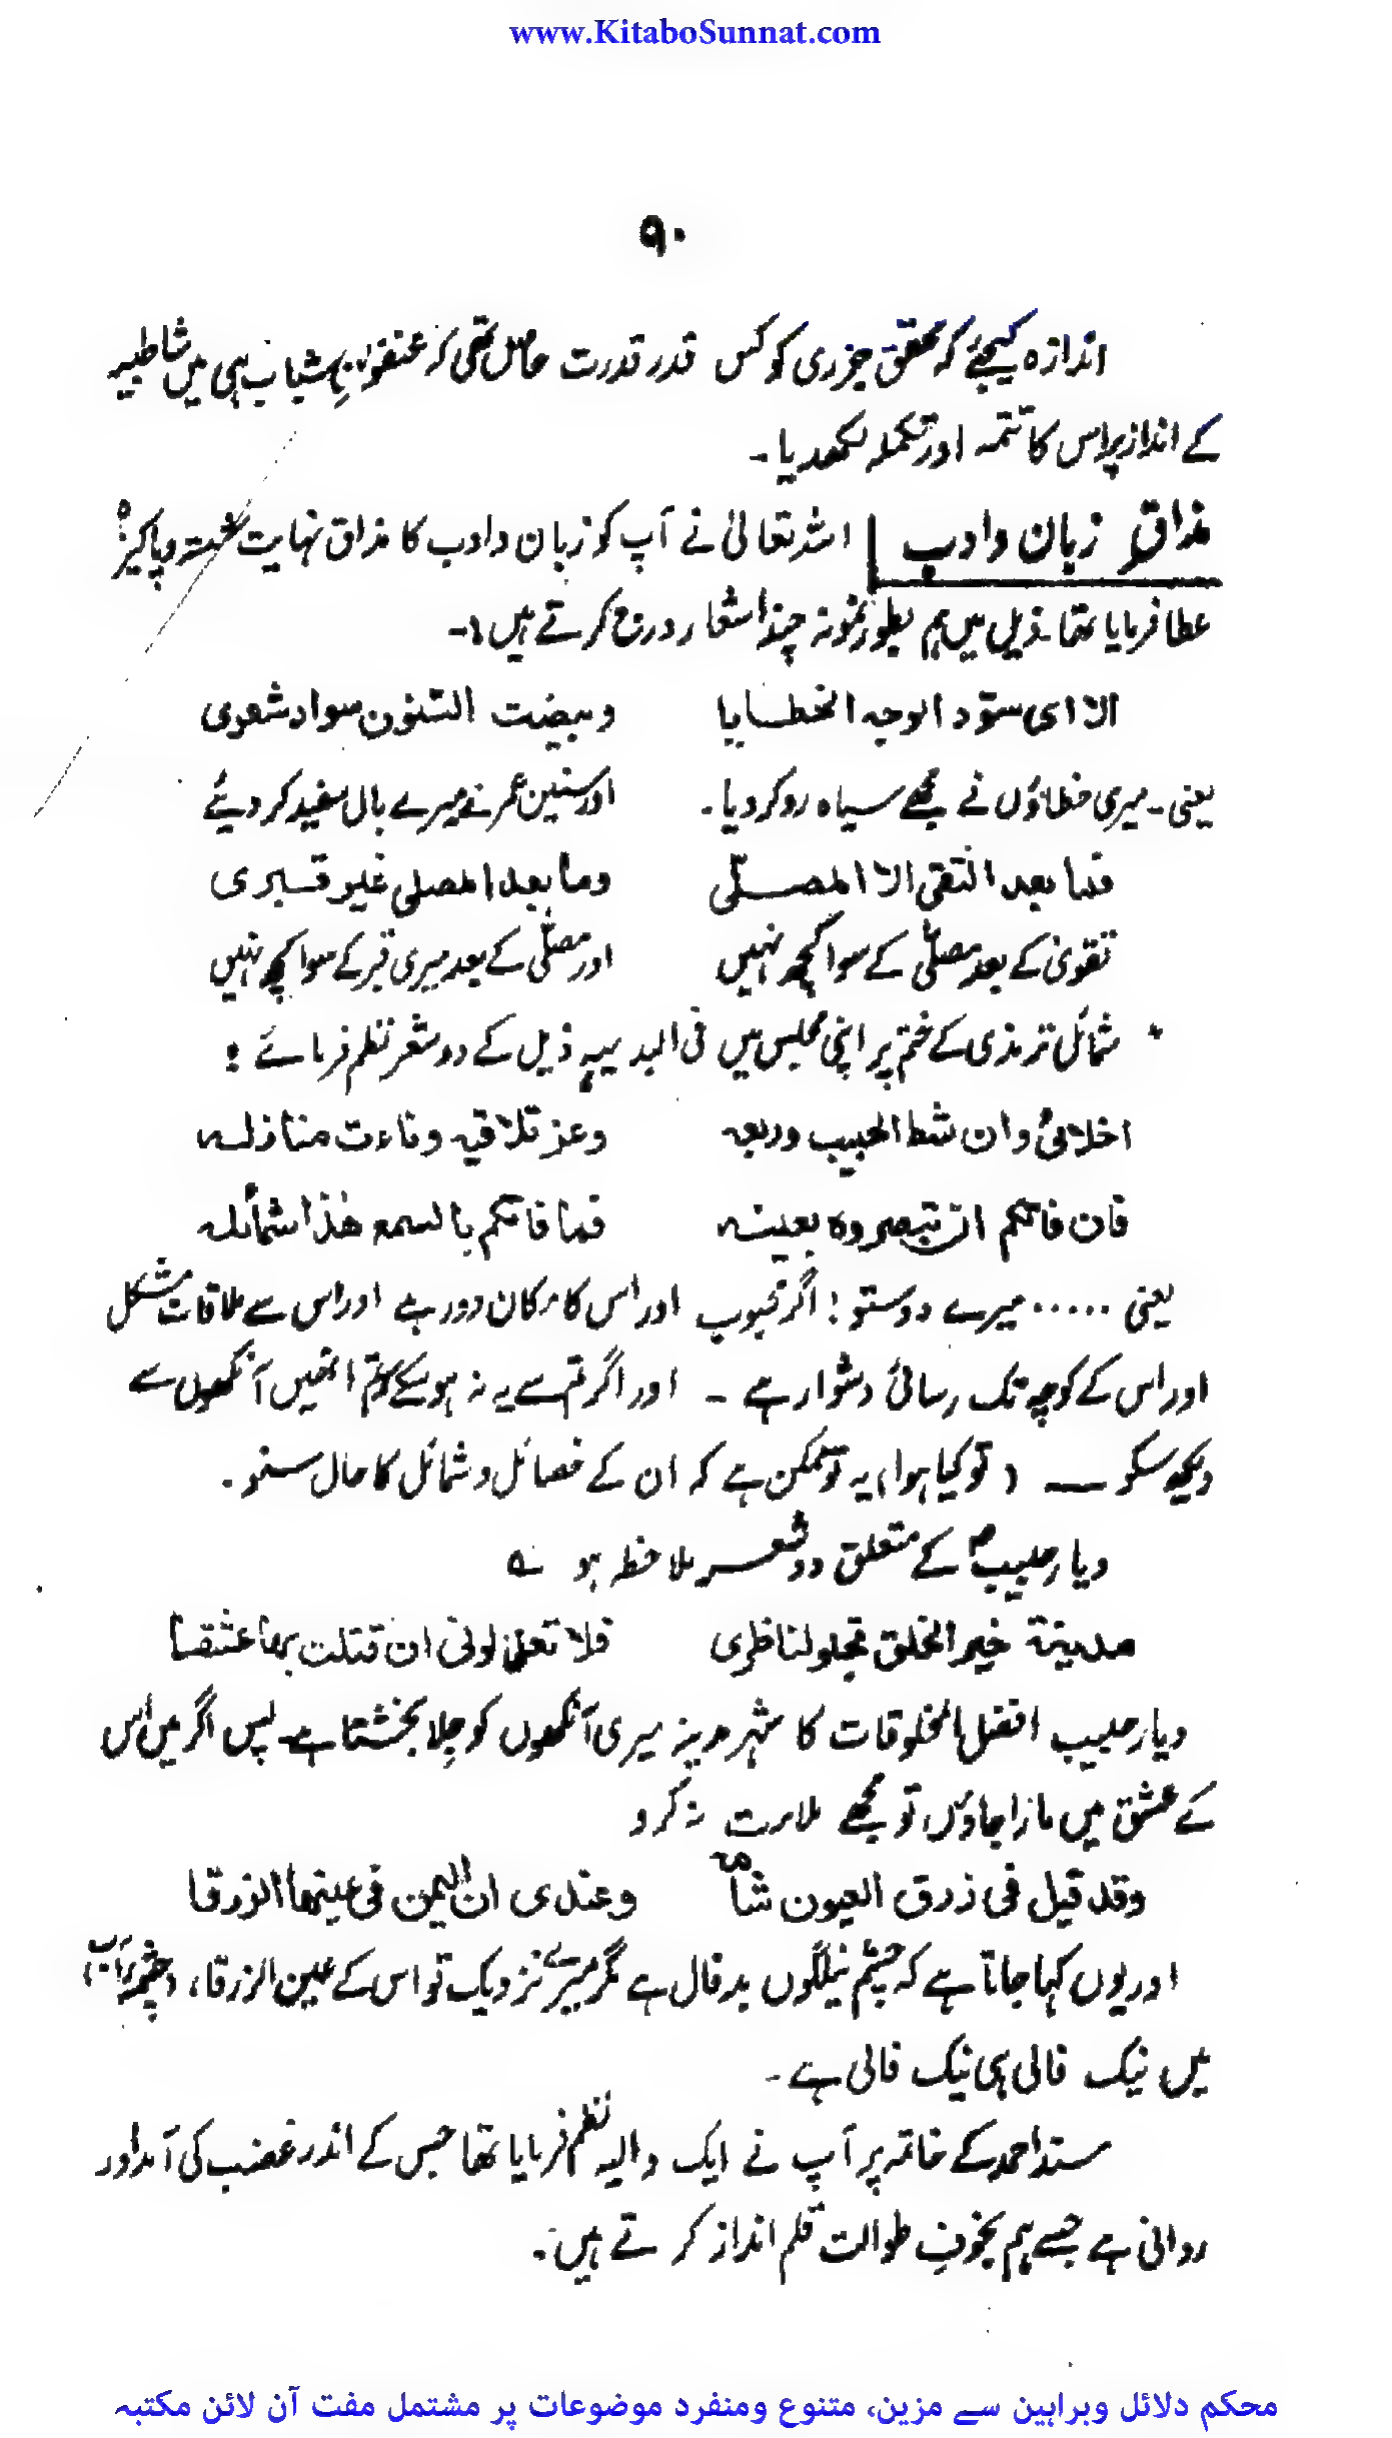 www.KitaboSunnat.com
۹۰
اندازہ کیجئے کہ محقق جزری کو کس قدر قدرت حاصل تھی کہ عنفوانِ شباب ہی میں شاطبیہ
کے انداز پر اس کا تتمہ اور تکملہ لکھدیا ۔
مذاقِ زبان و ادب اللہ تعالیٰ نے آپ کو زبان و ادب کا مذاق نہایت شستہ و پاکیزہ
عطا فرمایا تھا ۔ ذیل میں ہم بطور نمونہ چند اشعار درج کرتے ہیں :-
الا ای سوّد الوجہ الخطایا وبیضت السنون سواد شعری
یعنی ۔ میری خطاؤں نے مجھے سیاہ رو کر دیا ۔ اور سنین عمر نے میرے بال سفید کر دیئے
فما بعد التقی الا المصلّی وما بعد المصلی غیر قبری
تقویٰ کے بعد مصلّٰی کے سوا کچھ نہیں اور مصلّٰی کے بعد میری قبر کے سوا کچھ نہیں
* شمائل ترمذی کے ختم پر اپنی مجلس میں فی البدیہہ ذیل کے دو شعر نظم فرمائے :
اخلائی وان شط الحبیب وربعہ وعز تلاقیہ وناءت منازلہ
فان فاتکم ان تبصروہ بعینہ فما فاتکم بالسمع ھٰذا شمائلہ
یعنی ..... میرے دوستو ! اگر محبوب اور اس کا مکان دور ہے اور اس سے ملاقات مشکل
اور اس کے کوچہ تک رسائی دشوار ہے ۔ اور اگر تم سے یہ نہ ہو سکے کہ تم انھیں آنکھوں سے
دیکھ سکو ۔ ( تو کیا ہوا ) یہ تو ممکن ہے کہ ان کے فصائل و شمائل کا حال سنو ۔
دیار حبیبؐ کے متعلق دو شعر ملاحظہ ہو ؎
مدینۃ خیر الخلق تجلو لناظری فلا تعذلونی ان قتلت بھا عشقا
دیار حبیب افضل المخلوقات کا شہر مدینہ میری آنکھوں کو جِلا بخشتا ہے پس اگر میں اس
کے عشق میں مارا جاؤں تو مجھے ملامت نہ کرو
وقد قیل فی زرق العیون شأمۃ وعندی ان الیمن فی عینھا الزرقا
اور یوں کہا جاتا ہے کہ چشم نیلگوں بد فال ہے مگر میرے نزدیک تو اس کے عین الزرقاء ( چشمہ آب )
میں نیک فالی ہی نیک فالی ہے ۔
مسند احمد کے خاتمہ پر آپ نے ایک دالیہ نظم فرمایا تھا جس کے اندر غضب کی آمد اور
روانی ہے جسے ہم بخوفِ طوالت قلم انداز کرتے ہیں ۔
محکم دلائل وبراہین سے مزین، متنوع ومنفرد موضوعات پر مشتمل مفت آن لائن مکتبہ